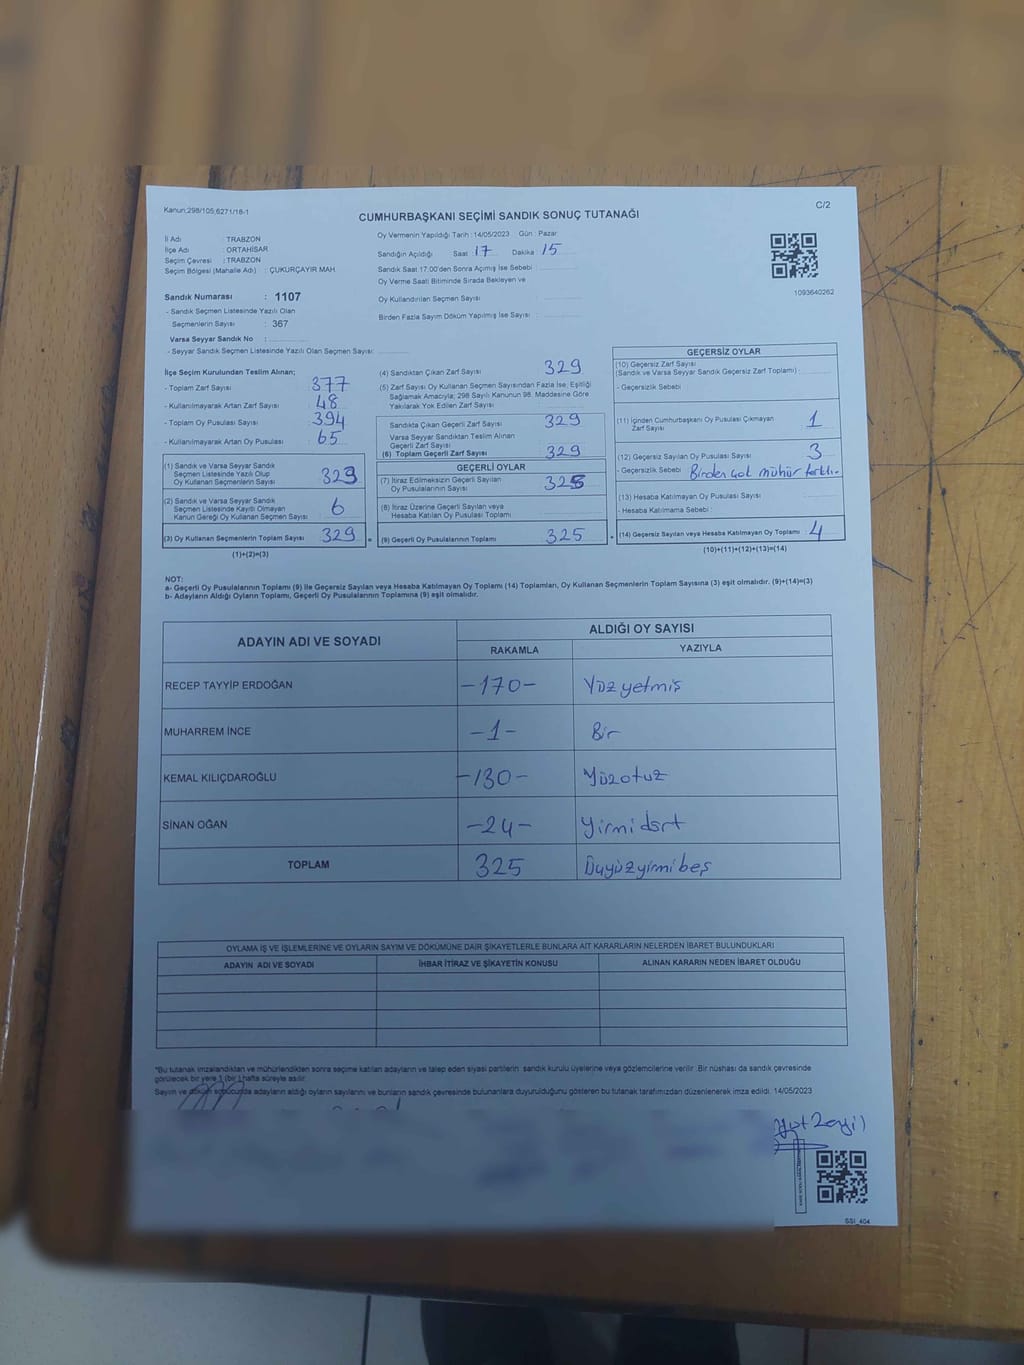 Kanun;298/105,6271/18-1
C/2
CUMHURBAŞKANI SEÇİMİ SANDIK SONUÇ TUTANAĞI
İl Adı : TRABZON
İlçe Adı : ORTAHİSAR
Seçim Çevresi : TRABZON
Seçim Bölgesi (Mahalle Adı) : ÇUKURÇAYIR MAH.
Oy Vermenin Yapıldığı Tarih : 14/05/2023 Gün : Pazar
Sandığın Açıldığı Saat : 17 Dakika : 15
Sandık Saat 17:00'den Sonra Açımış İse Sebebi :
Oy Verme Saati Bitiminde Sırada Bekleyen ve
Oy Kullandırılan Seçmen Sayısı :
Birden Fazla Sayım Döküm Yapılmış İse Sayısı :
1093640262
Sandık Numarası : 1107
- Sandık Seçmen Listesinde Yazılı Olan
Seçmenlerin Sayısı : 367
Varsa Seyyar Sandık No :
- Seyyar Sandık Seçmen Listesinde Yazılı Olan Seçmen Sayısı:
İlçe Seçim Kurulundan Teslim Alınan;
- Toplam Zarf Sayısı : 377
- Kullanılmayarak Artan Zarf Sayısı : 48
- Toplam Oy Pusulası Sayısı : 394
- Kullanılmayarak Artan Oy Pusulası : 65
(1) Sandık ve Varsa Seyyar Sandık
Seçmen Listesinde Yazılı Olup
Oy Kullanan Seçmenlerin Sayısı : 323
(2) Sandık ve Varsa Seyyar Sandık
Seçmen Listesinde Kayıtlı Olmayan
Kanun Gereği Oy Kullanan Seçmen Sayısı : 6
(3) Oy Kullanan Seçmenlerin Toplam Sayısı : 329
(1)+(2)=(3)
(4) Sandıktan Çıkan Zarf Sayısı : 329
(5) Zarf Sayısı Oy Kullanan Seçmen Sayısından Fazla İse; Eşitliği
Sağlamak Amacıyla; 298 Sayılı Kanunun 98. Maddesine Göre
Yakılarak Yok Edilen Zarf Sayısı :
Sandıkta Çıkan Geçerli Zarf Sayısı : 329
Varsa Seyyar Sandıktan Teslim Alınan
Geçerli Zarf Sayısı :
(6) Toplam Geçerli Zarf Sayısı : 329
GEÇERLİ OYLAR
(7) İtiraz Edilmeksizin Geçerli Sayılan
Oy Pusulalarının Sayısı : 325
(8) İtiraz Üzerine Geçerli Sayılan veya
Hesaba Katılan Oy Pusulası Toplamı :
(9) Geçerli Oy Pusulalarının Toplamı : 325
GEÇERSİZ OYLAR
(10) Geçersiz Zarf Sayısı
(Sandık ve Varsa Seyyar Sandık Geçersiz Zarf Toplamı) :
- Geçersizlik Sebebi :
(11) İçinden Cumhurbaşkanı Oy Pusulası Çıkmayan
Zarf Sayısı : 1
(12) Geçersiz Sayılan Oy Pusulası Sayısı : 3
- Geçersizlik Sebebi : Birden çok mühür farklı.
(13) Hesaba Katılmayan Oy Pusulası Sayısı :
- Hesaba Katılmama Sebebi :
(14) Geçersiz Sayılan veya Hesaba Katılmayan Oy Toplamı : 4
(10)+(11)+(12)+(13)=(14)
NOT:
a- Geçerli Oy Pusulalarının Toplamı (9) ile Geçersiz Sayılan veya Hesaba Katılmayan Oy Toplamı (14) Toplamları, Oy Kullanan Seçmenlerin Toplam Sayısına (3) eşit olmalıdır. (9)+(14)=(3)
b- Adayların Aldığı Oyların Toplamı, Geçerli Oy Pusulalarının Toplamına (9) eşit olmalıdır.
ADAYIN ADI VE SOYADI
ALDIĞI OY SAYISI
RAKAMLA YAZIYLA
RECEP TAYYİP ERDOĞAN -170- Yüz yetmiş
MUHARREM İNCE -1- Bir
KEMAL KILIÇDAROĞLU -130- Yüzotuz
SİNAN OĞAN -24- Yirmidört
TOPLAM 325 Üçyüzyirmibeş
OYLAMA İŞ VE İŞLEMLERİNE VE OYLARIN SAYIM VE DÖKÜMÜNE DAİR ŞİKAYETLERLE BUNLARA AİT KARARLARIN NELERDEN İBARET BULUNDUKLARI
ADAYIN ADI VE SOYADI İHBAR İTİRAZ VE ŞİKAYETİN KONUSU ALINAN KARARIN NEDEN İBARET OLDUĞU
*Bu tutanak imzalandıktan ve mühürlendikten sonra seçime katılan adayların ve talep eden siyasi partilerin sandık kurulu üyelerine veya gözlemcilerine verilir. Bir nüshası da sandık çevresinde
görülecek bir yere 1 (bir ) hafta süreyle asılır.
Sayım ve döküm sonucunda adayların aldığı oyların sayılarını ve bunların sandık çevresinde bulunanlara duyurulduğunu gösteren bu tutanak tarafımızdan düzenlenerek imza edildi. 14/05/2023
SSI_404